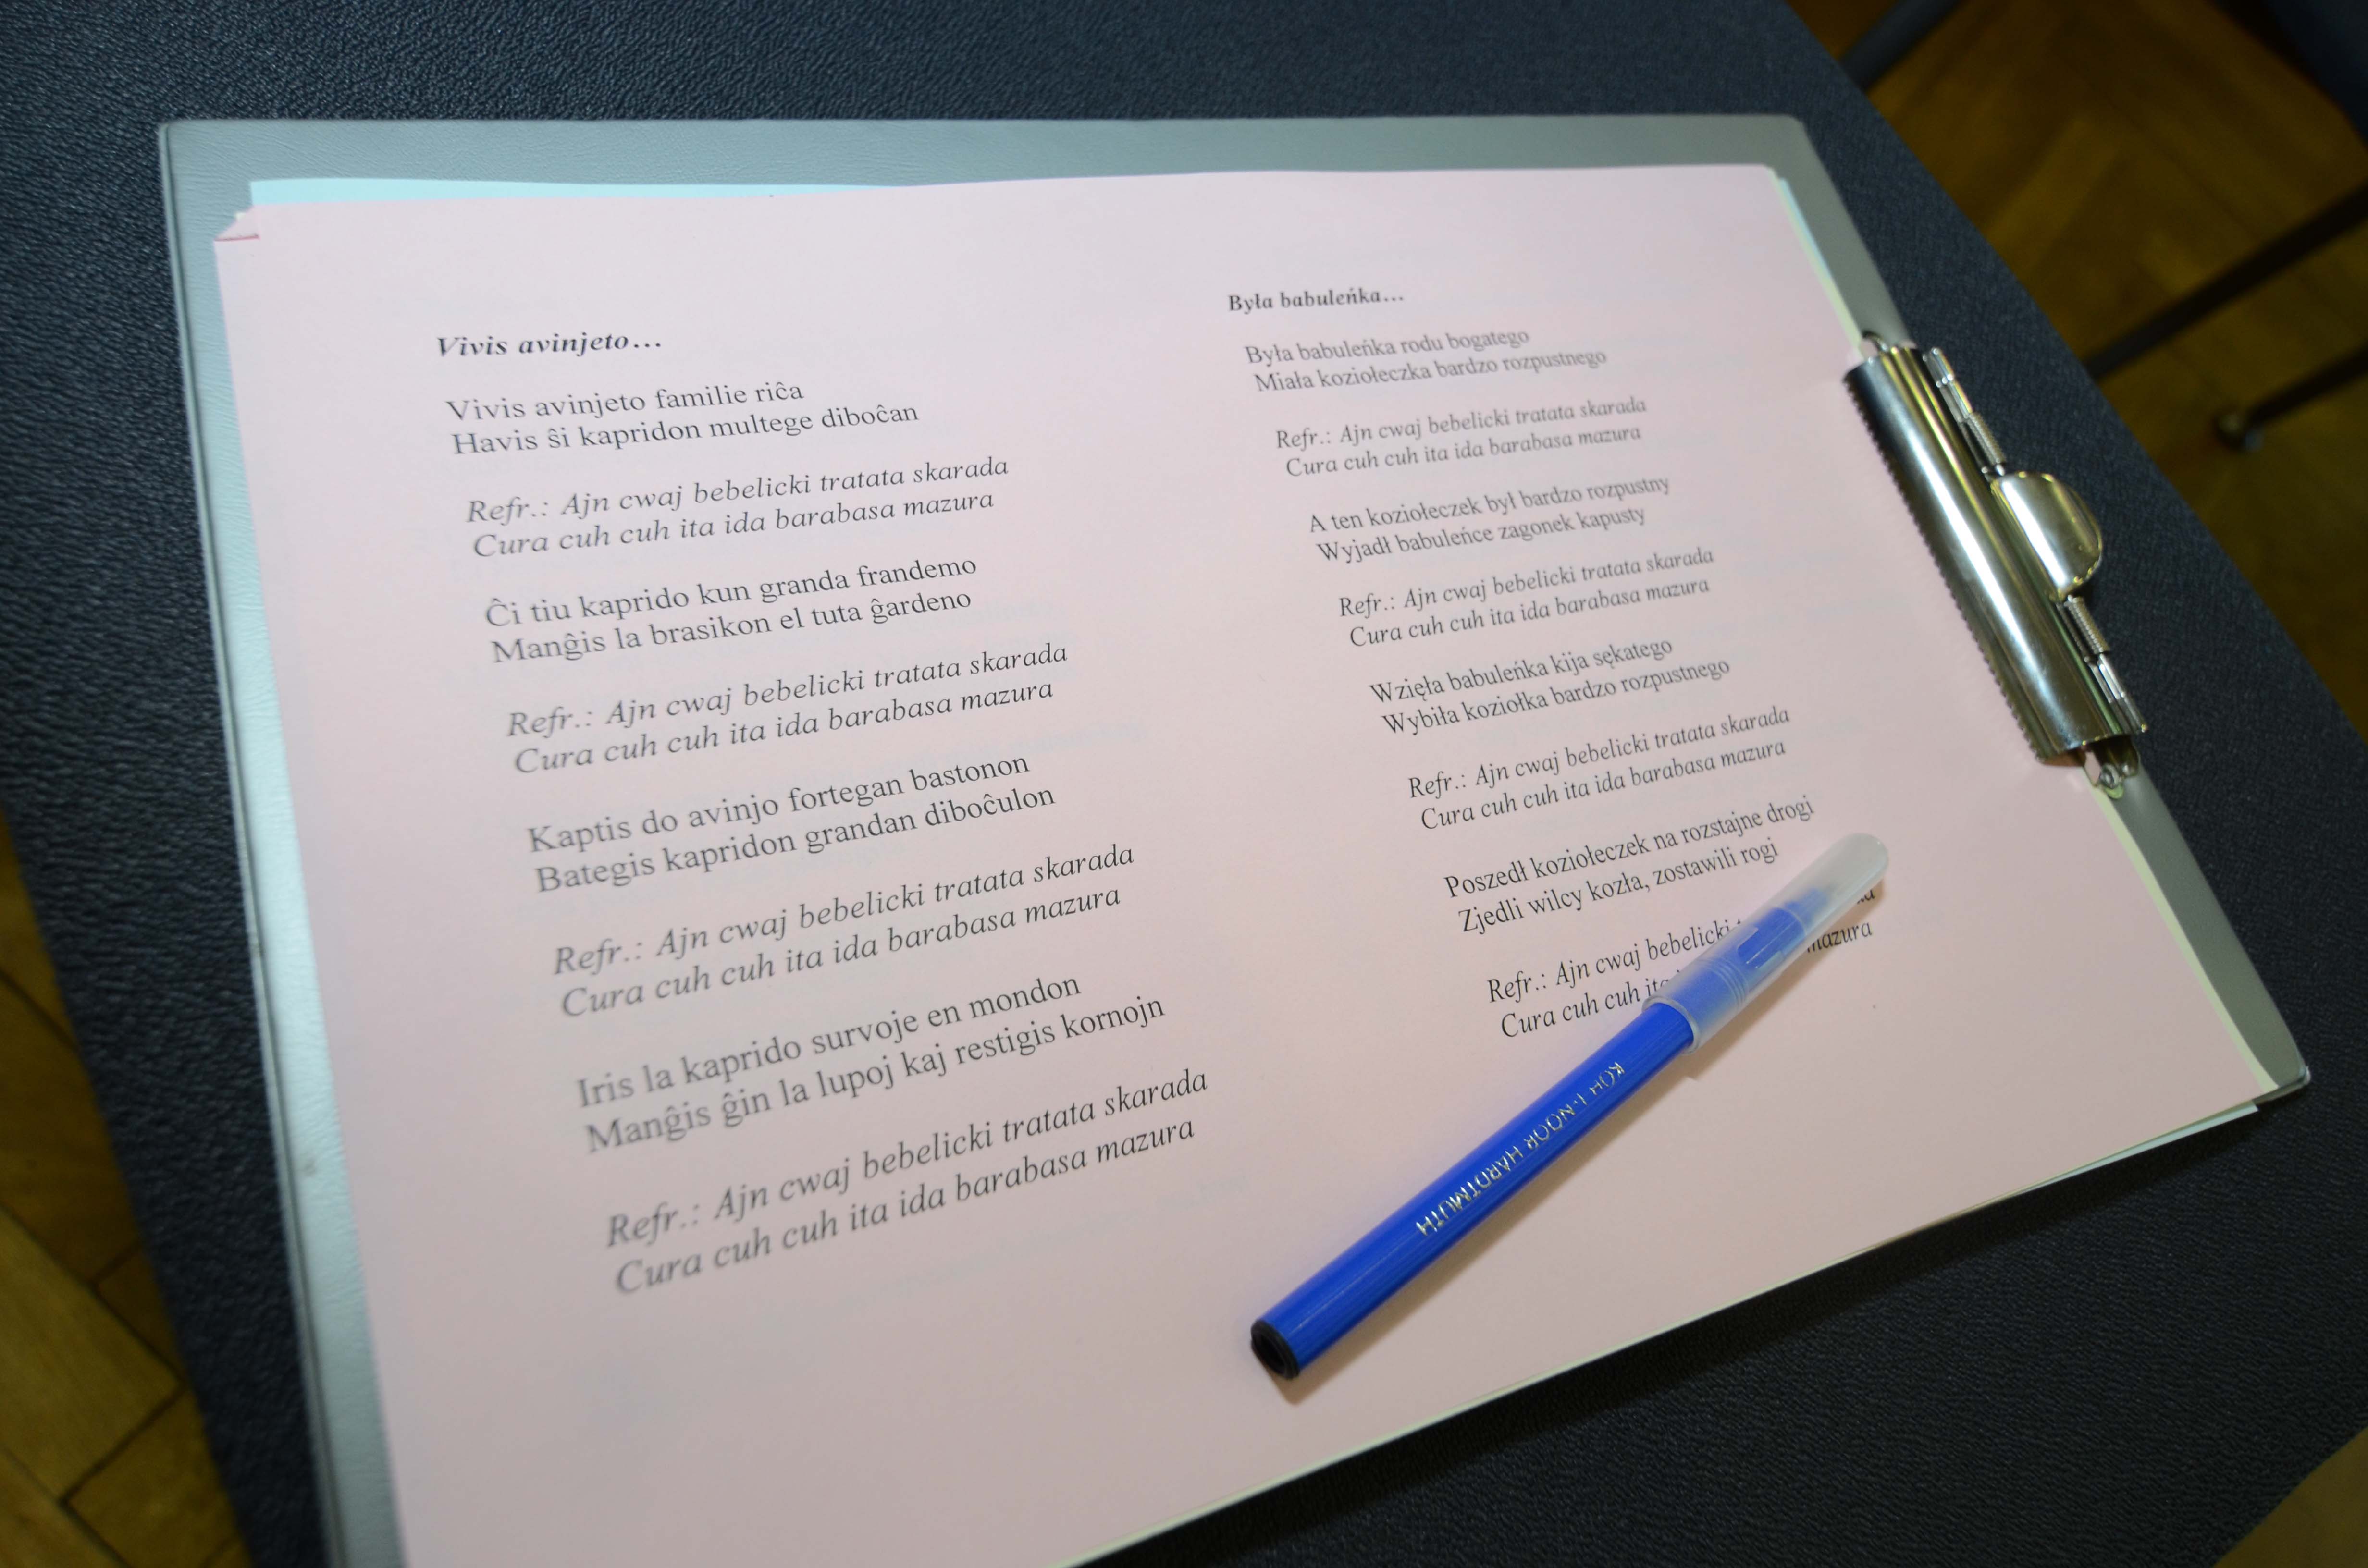 Vivis avinjeto...
Vivis avinjeto familie riĉa
Havis ŝi kapridon multege diboĉan
Refr.: Ajn cwaj bebelicki tratata skarada
Cura cuh cuh ita ida barabasa mazura
Ĉi tiu kaprido kun granda frandemo
Manĝis la brasikon el tuta ĝardeno
Refr.: Ajn cwaj bebelicki tratata skarada
Cura cuh cuh ita ida barabasa mazura
Kaptis do avinjo fortegan bastonon
Bategis kapridon grandan diboĉulon
Refr.: Ajn cwaj bebelicki tratata skarada
Cura cuh cuh ita ida barabasa mazura
Iris la kaprido survoje en mondon
Manĝis ĝin la lupoj kaj restigis kornojn
Refr.: Ajn cwaj bebelicki tratata skarada
Cura cuh cuh ita ida barabasa mazura
Była babuleńka...
Była babuleńka rodu bogatego
Miała koziołeczka bardzo rozpustnego
Refr.: Ajn cwaj bebelicki tratata skarada
Cura cuh cuh ita ida barabasa mazura
A ten koziołeczek był bardzo rozpustny
Wyjadł babuleńce zagonek kapusty
Refr.: Ajn cwaj bebelicki tratata skarada
Cura cuh cuh ita ida barabasa mazura
Wzięła babuleńka kija sękatego
Wybiła koziołka bardzo rozpustnego
Refr.: Ajn cwaj bebelicki tratata skarada
Cura cuh cuh ita ida barabasa mazura
Poszedł koziołeczek na rozstajne drogi
Zjedli wilcy kozła, zostawili rogi
Refr.: Ajn cwaj bebelicki
Cura cuh cuh ita mazura
KOH-I-NOOR HARDTMUTH